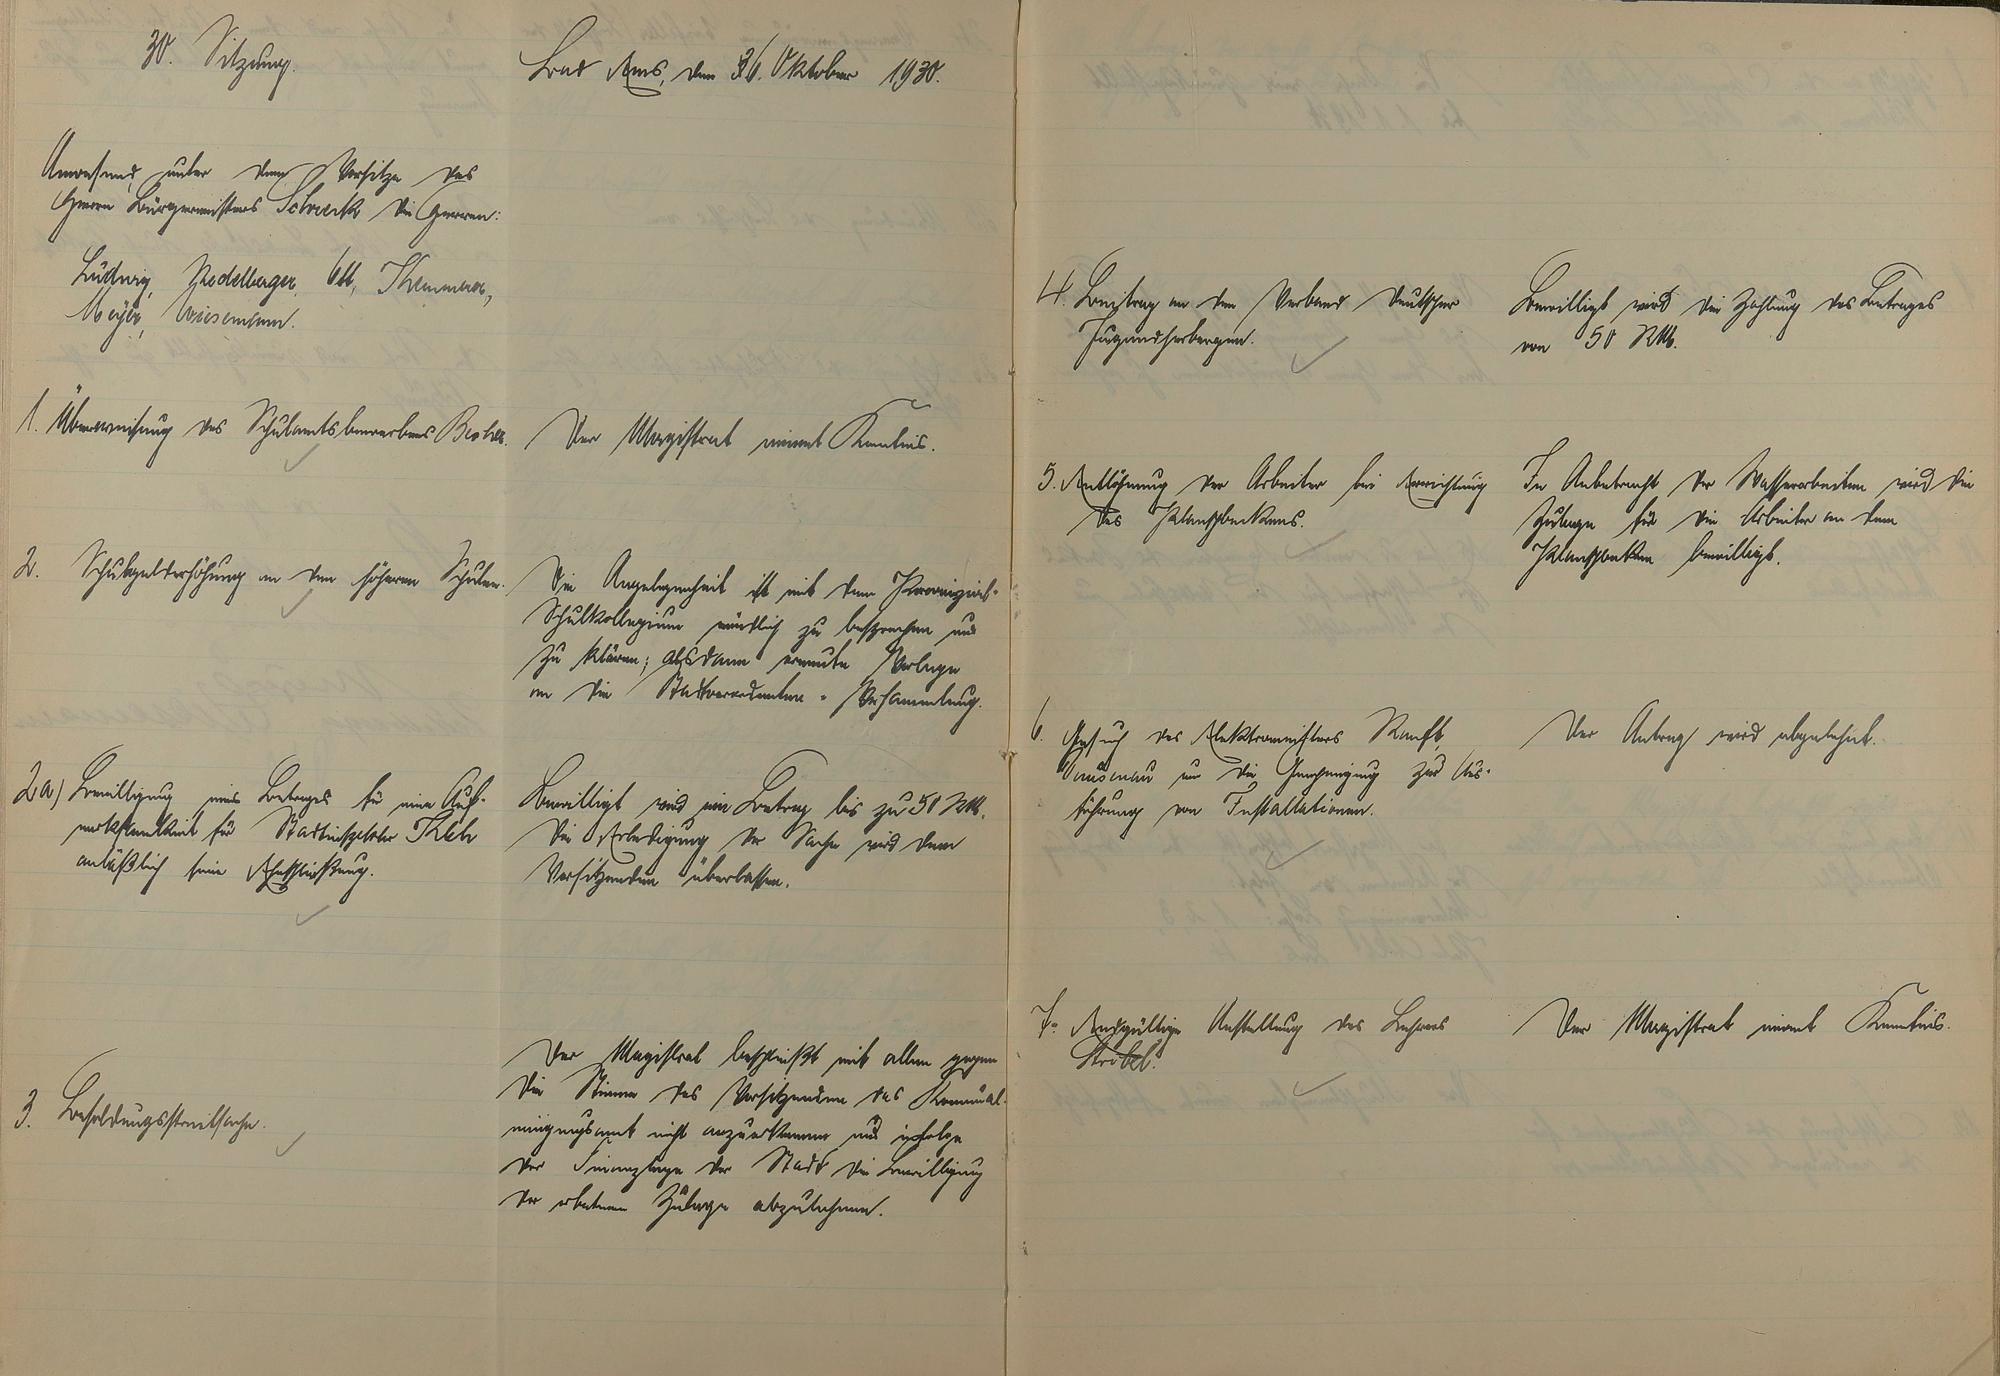 30. Sitzung.
Bad Ems, den 26. Oktober 1930.
Anwesend unter dem Vorsitze des
Herrn Bürgermeisters Schreck die Herren:
Ludwig, Nodelberger, Ott, Thammer,
Meyer, Wiesemann.
1. Überweisung des Schulamtsbewerbers
Der Magistrat nimmt Kenntnis.
2. Schulgelderhöhung an den höheren Schulen.
Die Angelegenheit ist mit dem Provinzial-
Schulkollegium mündlich zu besprechen und
zu klären; alsdann erneute Vorlage
an die Stadtverordneten-Versammlung.
2a) Bewilligung eines Betrages für eine Auf-
merksamkeit für Stadtinspektor
anläßlich seiner Eheschließung.
Bewilligt wird ein Betrag bis zu 50 RM.
Die Erledigung der Sache wird dem
Vorsitzenden überlassen.
3. Besoldungsstreitsache.
Der Magistrat beschließt mit allen gegen
die Stimme des Vorsitzenden das Kommunal-
einigungsamt nicht anzuerkennen und infolge
der Finanzlage der Stadt die Bewilligung
der erbetenen Zulage abzulehnen.
4. Beitrag an den Verband Deutscher
Jugendherbergen.
Bewilligt wird die Zahlung des Betrages
von 50 RM.
5. Entlöhnung der Arbeiter bei Errichtung
des Planschbeckens.
In Anbetracht der Wasserarbeiten wird die
Zulage für die Arbeiter an dem
Planschbecken bewilligt.
6. Gesuch des Elektromeisters Ranft,
Dausenau um die Genehmigung zur Aus-
führung von Installationen.
Der Antrag wird abgelehnt.
7. Endgültige Anstellung des Lehrers
Ströbel.
Der Magistrat nimmt Kenntnis.